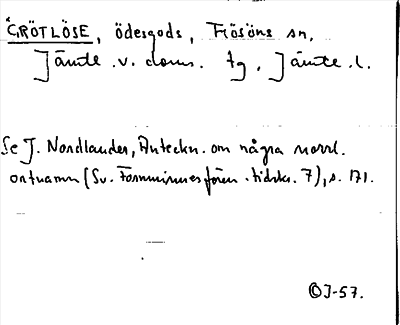 "GRÖTLÖSE, ödesgods, Frösöns sn,
Jämtl. v. doms. tg, Jämtl. l.
Se J. Nordlander, Anteckn. om några norrl.
ortnamn (Sv. Fornminnesfören. tidskr. 7), s. 171.
©J-57.